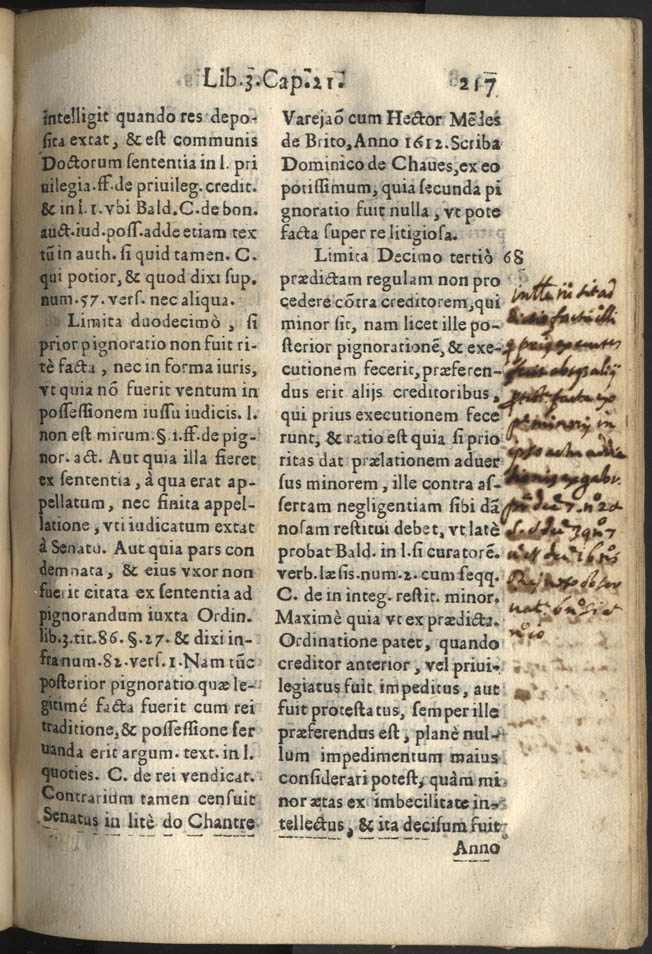 Lib.3.Cap.21.
217
intelligit quando res depo-
sita extat, & est communis
Doctorum sententia in l. pri
uilegia.ff.de priuileg.credit.
& in l.1.vbi Bald.C.de bon.
auct.iud.poss.adde etiam tex
tũ in auth. si quid tamen. C.
qui potior, & quod dixi sup.
num.57. vers. nec aliqua.
Limita duodecimò, si
prior pignoratio non fuit ri-
tè facta, nec in forma iuris,
vt quia nõ fuerit ventum in
possessionem iussu iudicis. l.
non est mirum.§.1.ff.de pig-
nor. act. Aut quia illa fieret
ex sententia, à qua erat ap-
pellatum, nec finita appel-
latione, vti iudicatum extat
à Senatu. Aut quia pars con
demnata, & eius vxor non
fuerit citata ex sententia ad
pignorandum iuxta Ordin.
lib.3.tit.86. §.27. & dixi in-
fra num.82.vers.1.Nam tũc
posterior pignoratio quæ le-
gitimé facta fuerit cum rei
traditione,& possessione ser
uanda erit argum. text. in l.
quoties. C. de rei vendicat.
Contrarium tamen censuit
Senatus in litè do Chantre
Varejaõ cum Hector Mẽdes
de Brito, Anno 1612. Scriba
Dominico de Chaues, ex eo
potissimum, quia secunda pi
gnoratio fuit nulla, vt pote
facta super re litigiosa.
Limita Decimo tertiò 68
prædictam regulam non pro
cedere cõtra creditorem, qui
minor sit, nam licet ille po-
sterior pignorationẽ, & exe-
cutionem fecerit, præferen-
dus erit alijs creditoribus,
qui prius executionem fece
runt, & ratio est quia si prio
ritas dat prælationem aduer
sus minorem, ille contra as-
sertam negligentiam sibi dã
nosam restitui debet, vt latè
probat Bald. in l.si curatorẽ.
verb. læsis.num.2. cum seqq.
C. de in integ. restit. minor.
Maximè quia vt ex prædicta
Ordinatione patet, quando
creditor anterior, vel priui-
legiatus fuit impeditus, aut
fuit protestatus, semper ille
præferendus est, planè nul-
lum impedimentum maius
considerari potest, quàm mi
nor ætas ex imbecilitate in-
tellectus, & ita decisum fuit
Anno